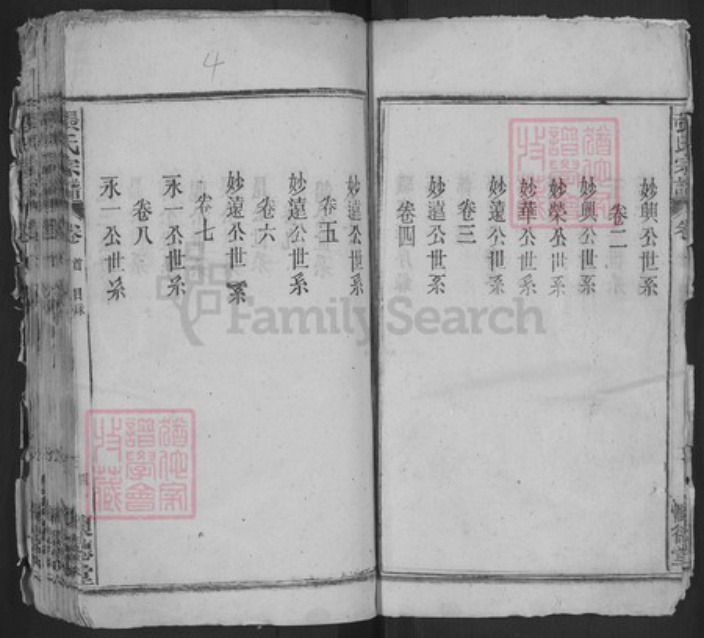 妙興公世系
卷二
妙興公世系
妙榮公世系
妙華公世系
妙遠公世系
卷三
妙遠公世系
卷四
妙遠公世系
卷五
妙遠公世系
卷六
妙遠公世系
卷七
永一公世系
卷八
永一公世系
張氏宗譜
卷首
目錄
懷德堂
4
FamilySearch